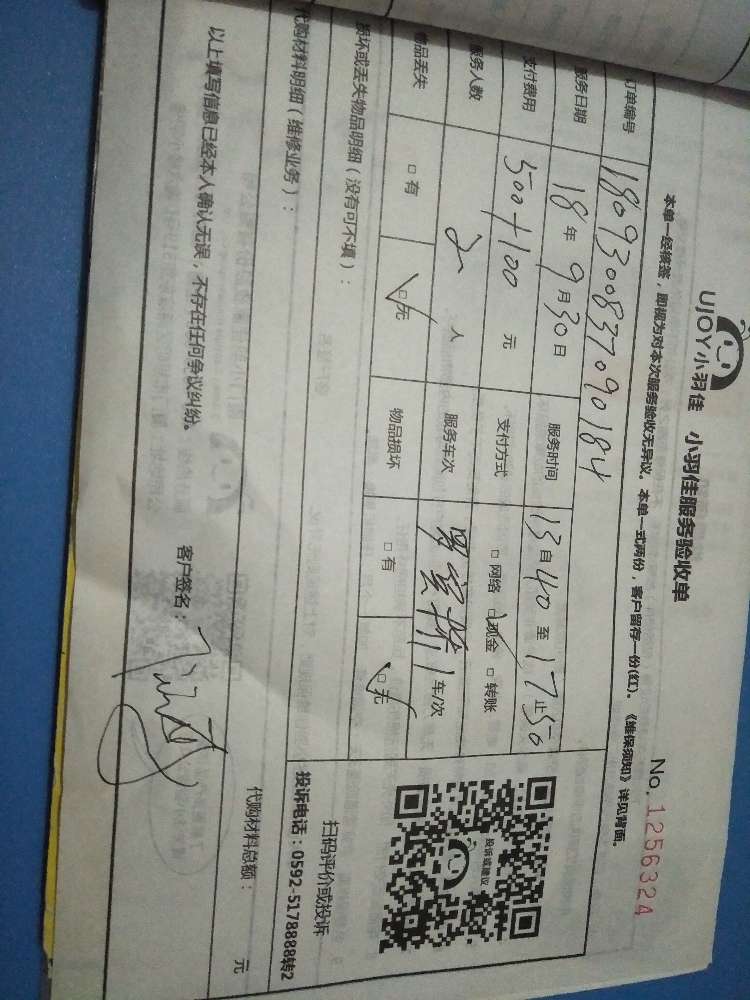 UJOY小羽佳 小羽佳服务验收单
No. 1256324
本单一经核签，即视为对本次服务验收无异议。本单一式两份，客户留存一份(红)。《维保须知》详见背面。
订单编号 180930083709 0184
服务日期 18年9月30日 服务时间 13自40至17止50
支付费用 500+100元 支付方式 □网络 ☑现金 □转账
服务人数 2人 服务车次 1车/次
物品丢失 □有 ☑无 物品损坏 □有 ☑无
投诉或建议
扫码评价或投诉
投诉电话：0592-5178888转2
损坏或丢失物品明细（没有可不填）：
代购材料明细（维修业务）：
代购材料总额： 元
以上填写信息已经本人确认无误，不存在任何争议纠纷。
客户签名：